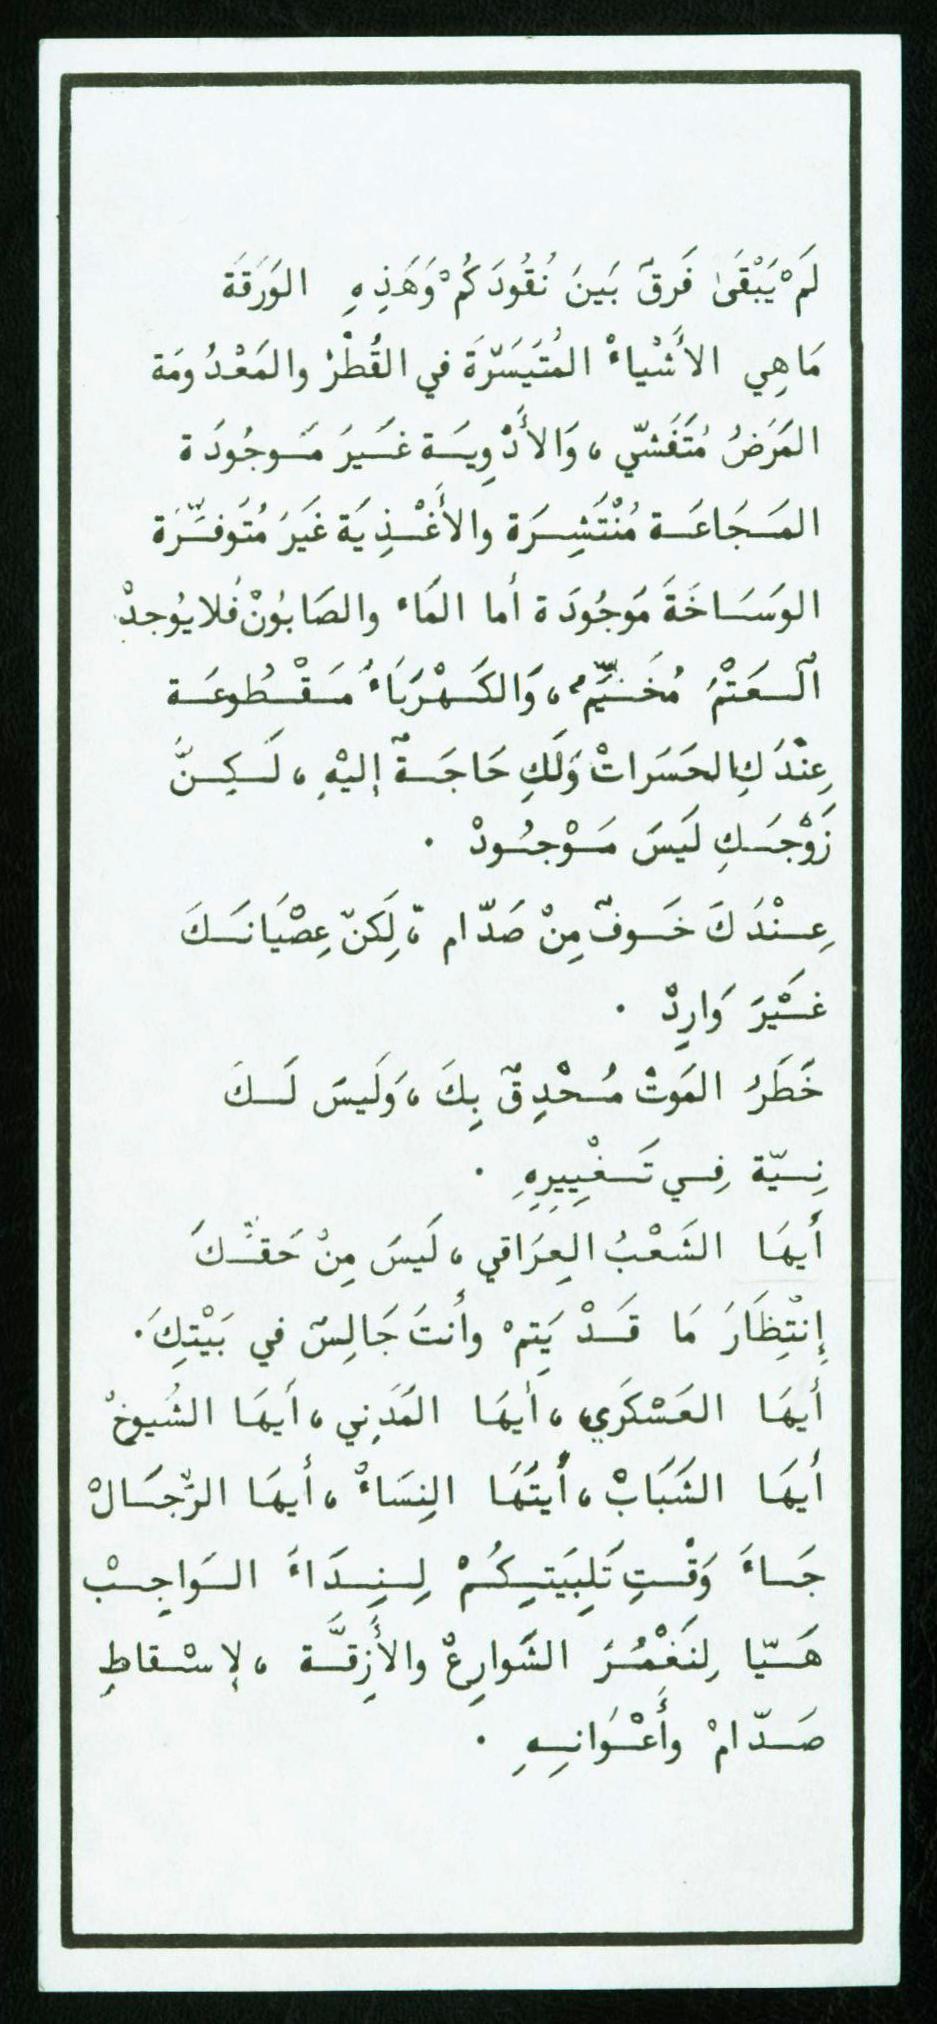 لَمْ يَبْقَىٰ فَرقٌ بَينَ نُقُودَكُمْ وَهَذِهِ الوَرَقَة
مَاهِي الأَشْياءْ المُتَيَسّرَةَ في القُطْرْ والمَعْدُومَة
المَرَضُ مُتَفَشّي، وَالأَدْوِيَة غَيرَ مَوجُودَة
المَجَاعَة مُنْتَشِرَة والأَغْذِيَة غَيَرُ مُتَوفّرَة
الوَسَاخَةَ مَوجُودَة أما المَاء والصَابُونْ فَلا يُوجدْ
العَتْمُ مُخَيّمٌ، وَالكَهْرَبَاءُ مَقْطُوعَة
عِنْدَكِ الحَسَراتْ وَلَكِ حَاجَةٌ إليْهِ، لَكِنَّ
زَوْجَكِ لَيسَ مَوْجُودْ .
عِنْدَكَ خَوفٌ مِنْ صَدّام، لَكِنّ عِصْيَانَكَ
غَيْرَ وَارِدْ .
خَطَرُ المَوتْ مُحْدِقٌ بِكَ، وَلَيسَ لَكَ
نِيّة فِي تَغْيِيرِهِ .
أَيهَا الشَعْبُ العِرَاقي، لَيسَ مِنْ حَقّكَ
إِنتْظَارَ مَا قَدْ يَتِمْ وأَنتَ جَالِسٌ في بَيْتِكَ.
أَيهَا العَسْكَرَي، أيهَا المَدَنِي، أَيهَا الشُيوخْ
أَيهَا الشَبَابْ، أَيتَهَا النِسَاءْ، أيهَا الرّجَالْ
جَاءَ وَقْتِ تَلبِيَتِكُمْ لِنِدَاءَ الوَاجِبْ
هَيّا لِنَغْمُرَ الشَوارِعْ والأَزِقَّة، لإسْقاطِ
صَدّامْ وأَعْوَانِهِ .